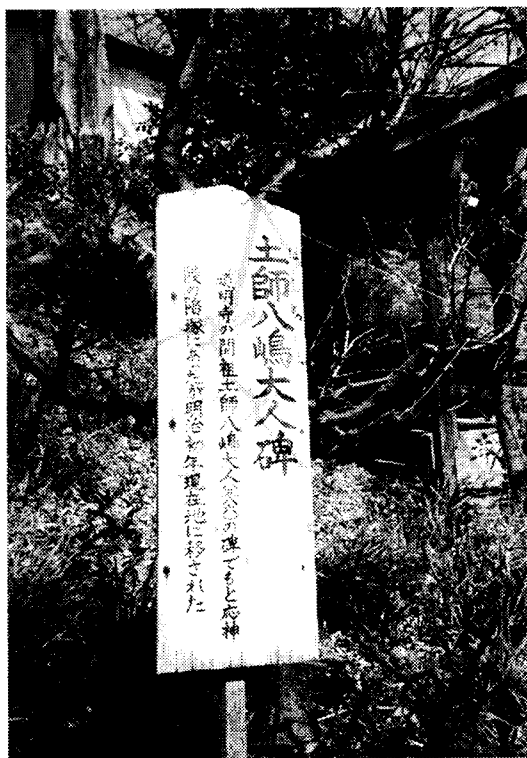 土師八嶋大人碑
道明寺の開祖土師八嶋大人の碑でもと応神
陵の陪塚にあったが明治初年現在地に移された